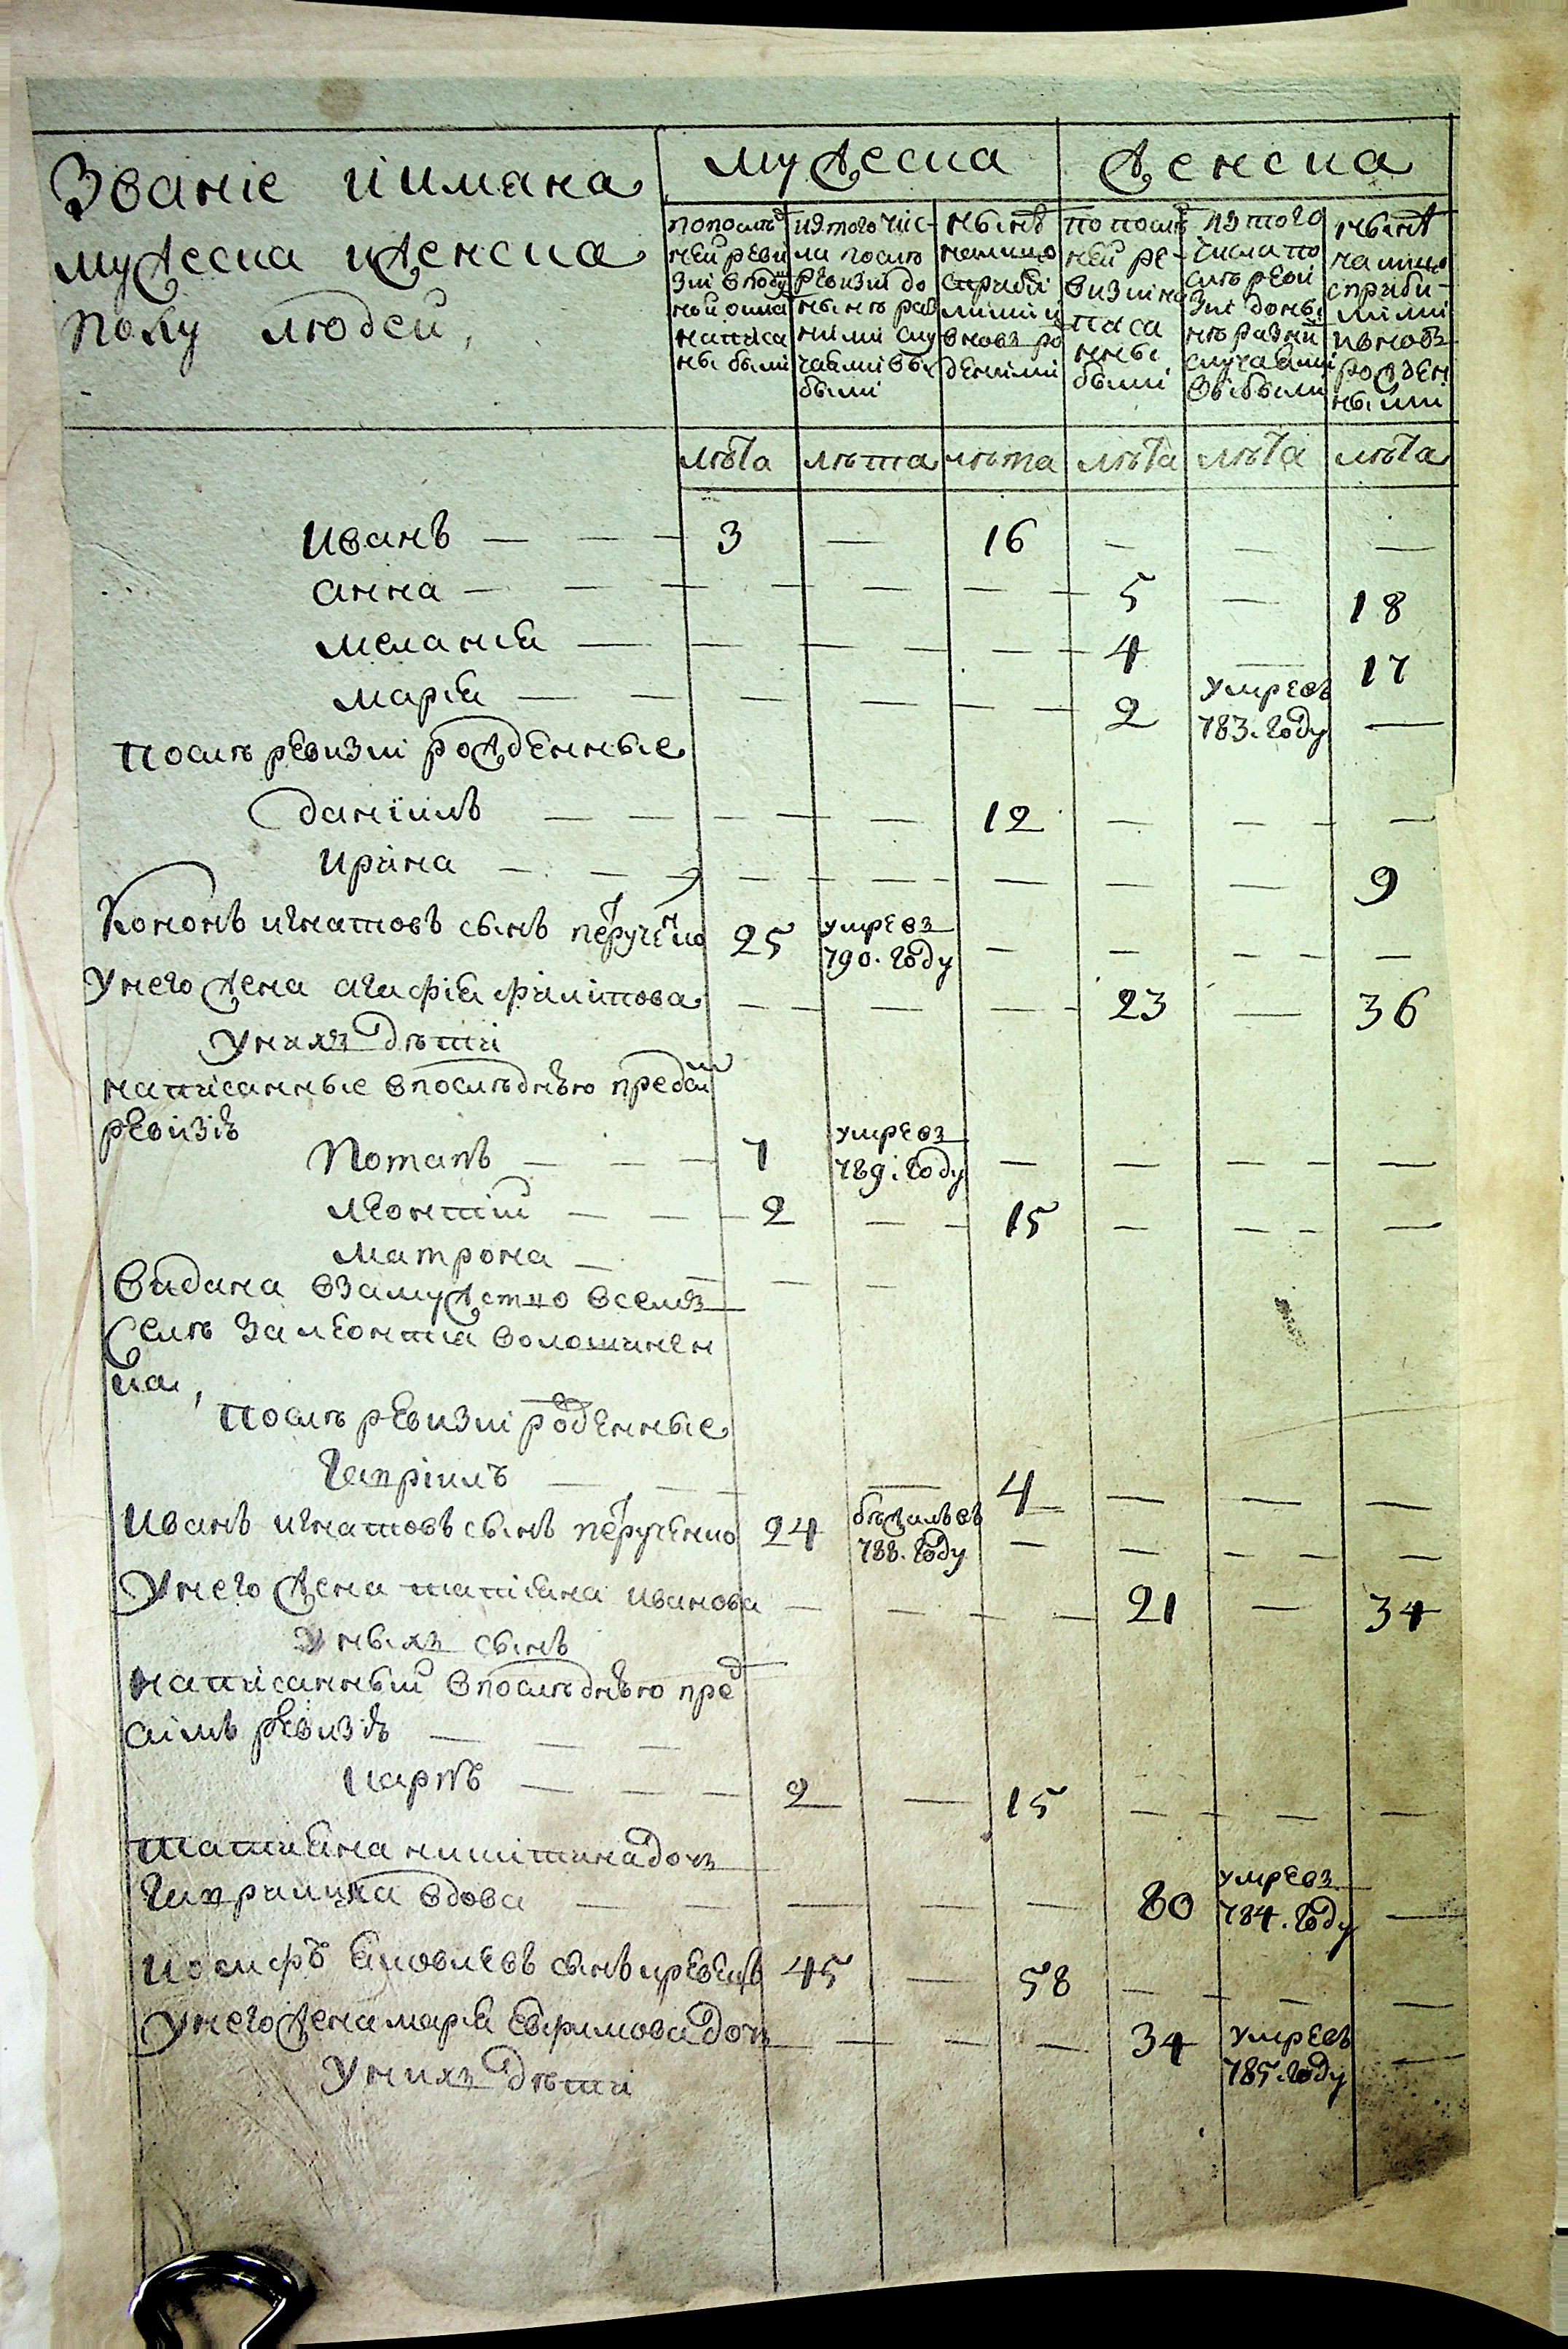 Званіе иимяна
мужеска иженска
полу людей,
мужеска
женска
попослѣд
ней реви
зіи вподу
ной окла
написа
ны были
изтого чис-
ла послѣ
ревизіи до
нынѣ раз
ними слу
чаями вы
были
нынѣ
налицо
сприбы
лыми и
вновъ ро
денними
по послѣд
ней ре-
визіи на
писа
нны
были
из того
числа по
слѣ реви
зіи доны
нѣ разній
случаями
выбыли
нынѣ
на лицо
сприбы-
лыми
ивновъ
рожден
ными
лѣта лѣта лѣта лѣта лѣта лѣта
Иванъ — — — 3 — 16 — — —
анна — — — — — — — 5 — 18
меланія — — — — — — 4 — 17
марія — — — — — — 2 умресъ 783. году —
послѣ ревизіи рожденные
даніилъ — — — — — 12 — — — —
ирина — — — — — — — — — 9
Кононъ игнатовъ сынъ перучен҃ко 25 умревз 790. году — — — — —
Унего жена агафія филипова — — — 23 — 36
Унихз дѣти
написанные впослѣднѣю пред сим
ревизіѣ
Потапъ — — — 7 умревз 789. году — — — — —
леонтій — — — 2 — — 15 — — — —
матрона — — — —
видана взамужство вселѣз
Селѣ за леонтіа волошинен
ка,
послѣ ревизіи роденные
Гаврііилъ — — — — 4 — — —
Иванъ игнатовъ сынъ перученко 24 бѣжалъвъ 788. году — — — — —
Унего жена татіяна иванова — — — — 21 — 34
Уныхз сынъ
написанный впослѣднѣю пред
симъ ревизіѣ — — —
карпъ — — — 2 — 15 — — — —
татияна никитина дочз
Гаврилиха вдова — — — — — 80 умревз 784. году —
иосифъ яковлевъ сынъ кревецъ 45 — 58 — — — —
Унего жена марія евфимова дочз — — — 34 умресъ 785. году —
Унихз дѣти